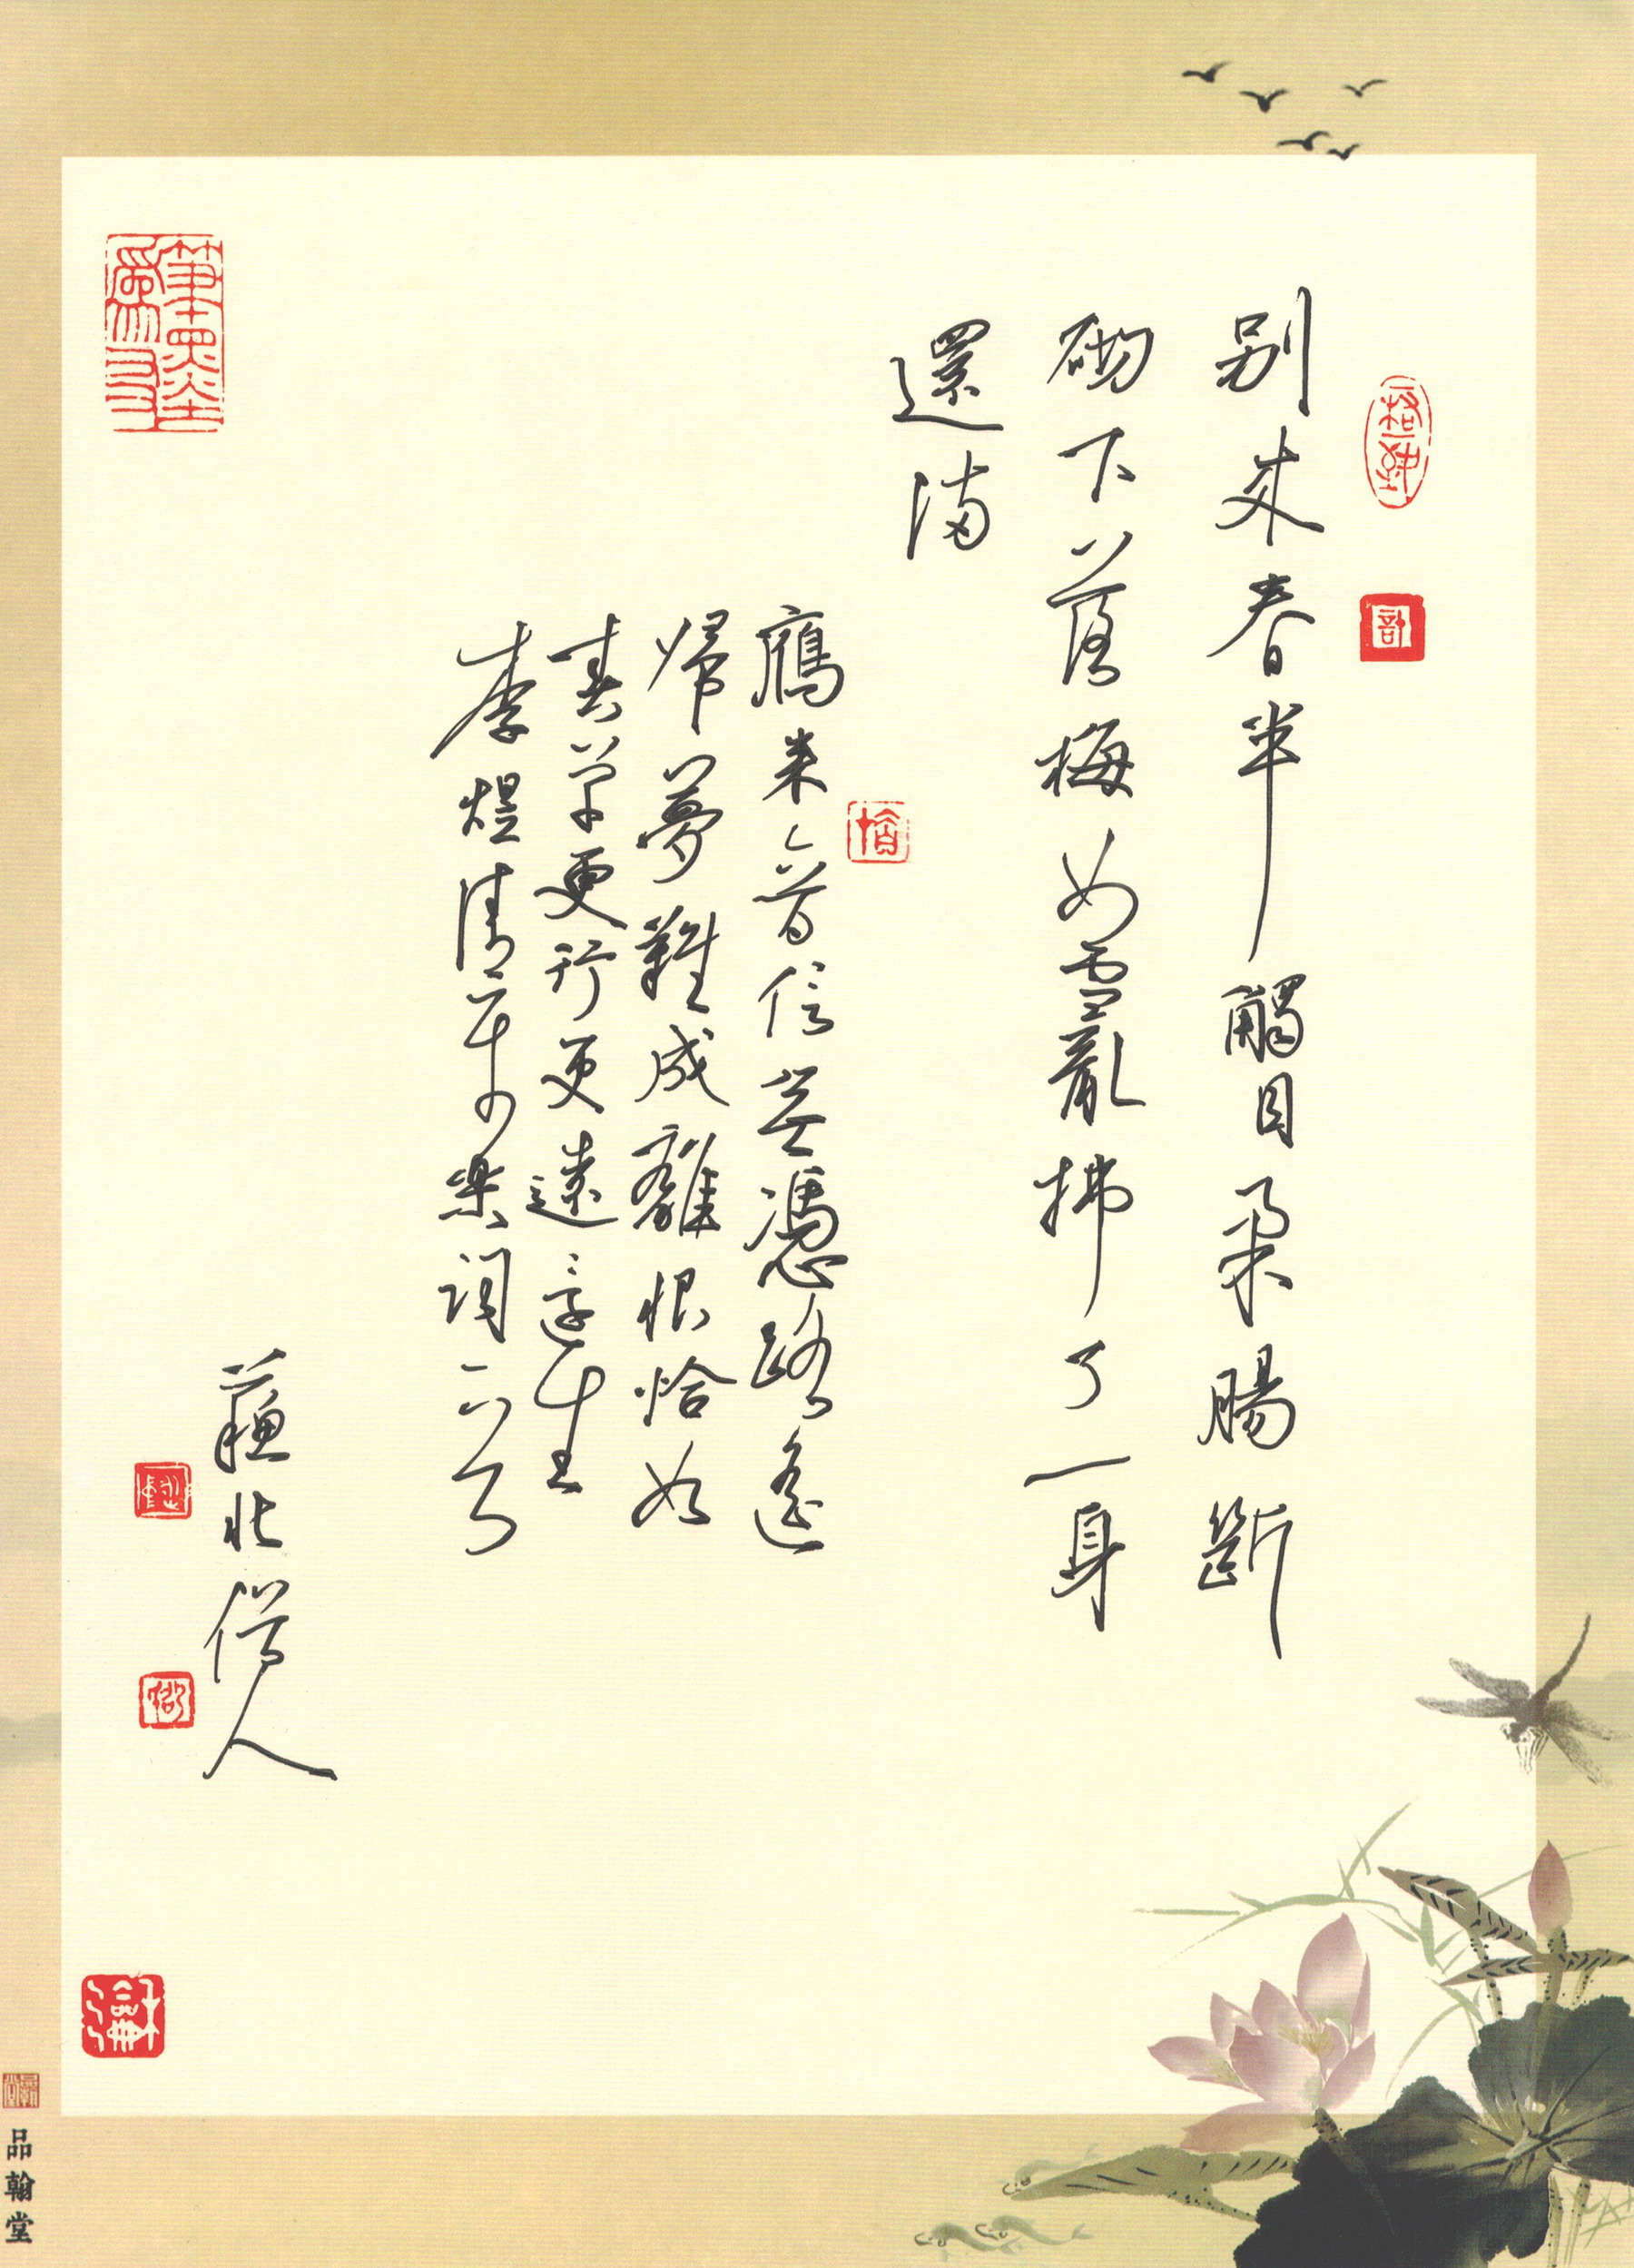 别來春半觸目柔腸斷
砌下落梅如雪亂拂了一身
還滿
鴈来音信無憑路遙
歸夢難成離恨恰如
春草更行更遠還生
李煜清平樂詞一首
蘇北人
筆墨為友
品翰堂